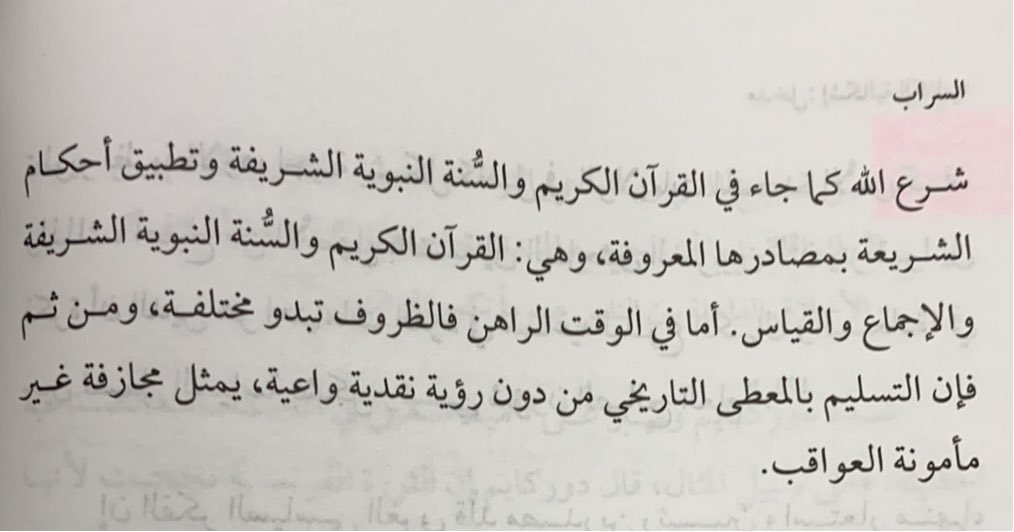 السراب
شرع الله كما جاء في القرآن الكريم والسُّنة النبوية الشريفة وتطبيق أحكام
الشريعة بمصادرها المعروفة، وهي: القرآن الكريم والسُّنة النبوية الشريفة
والإجماع والقياس. أما في الوقت الراهن فالظروف تبدو مختلفة، ومن ثم
فإن التسليم بالمعطى التاريخي من دون رؤية نقدية واعية، يمثل مجازفة غير
مأمونة العواقب.